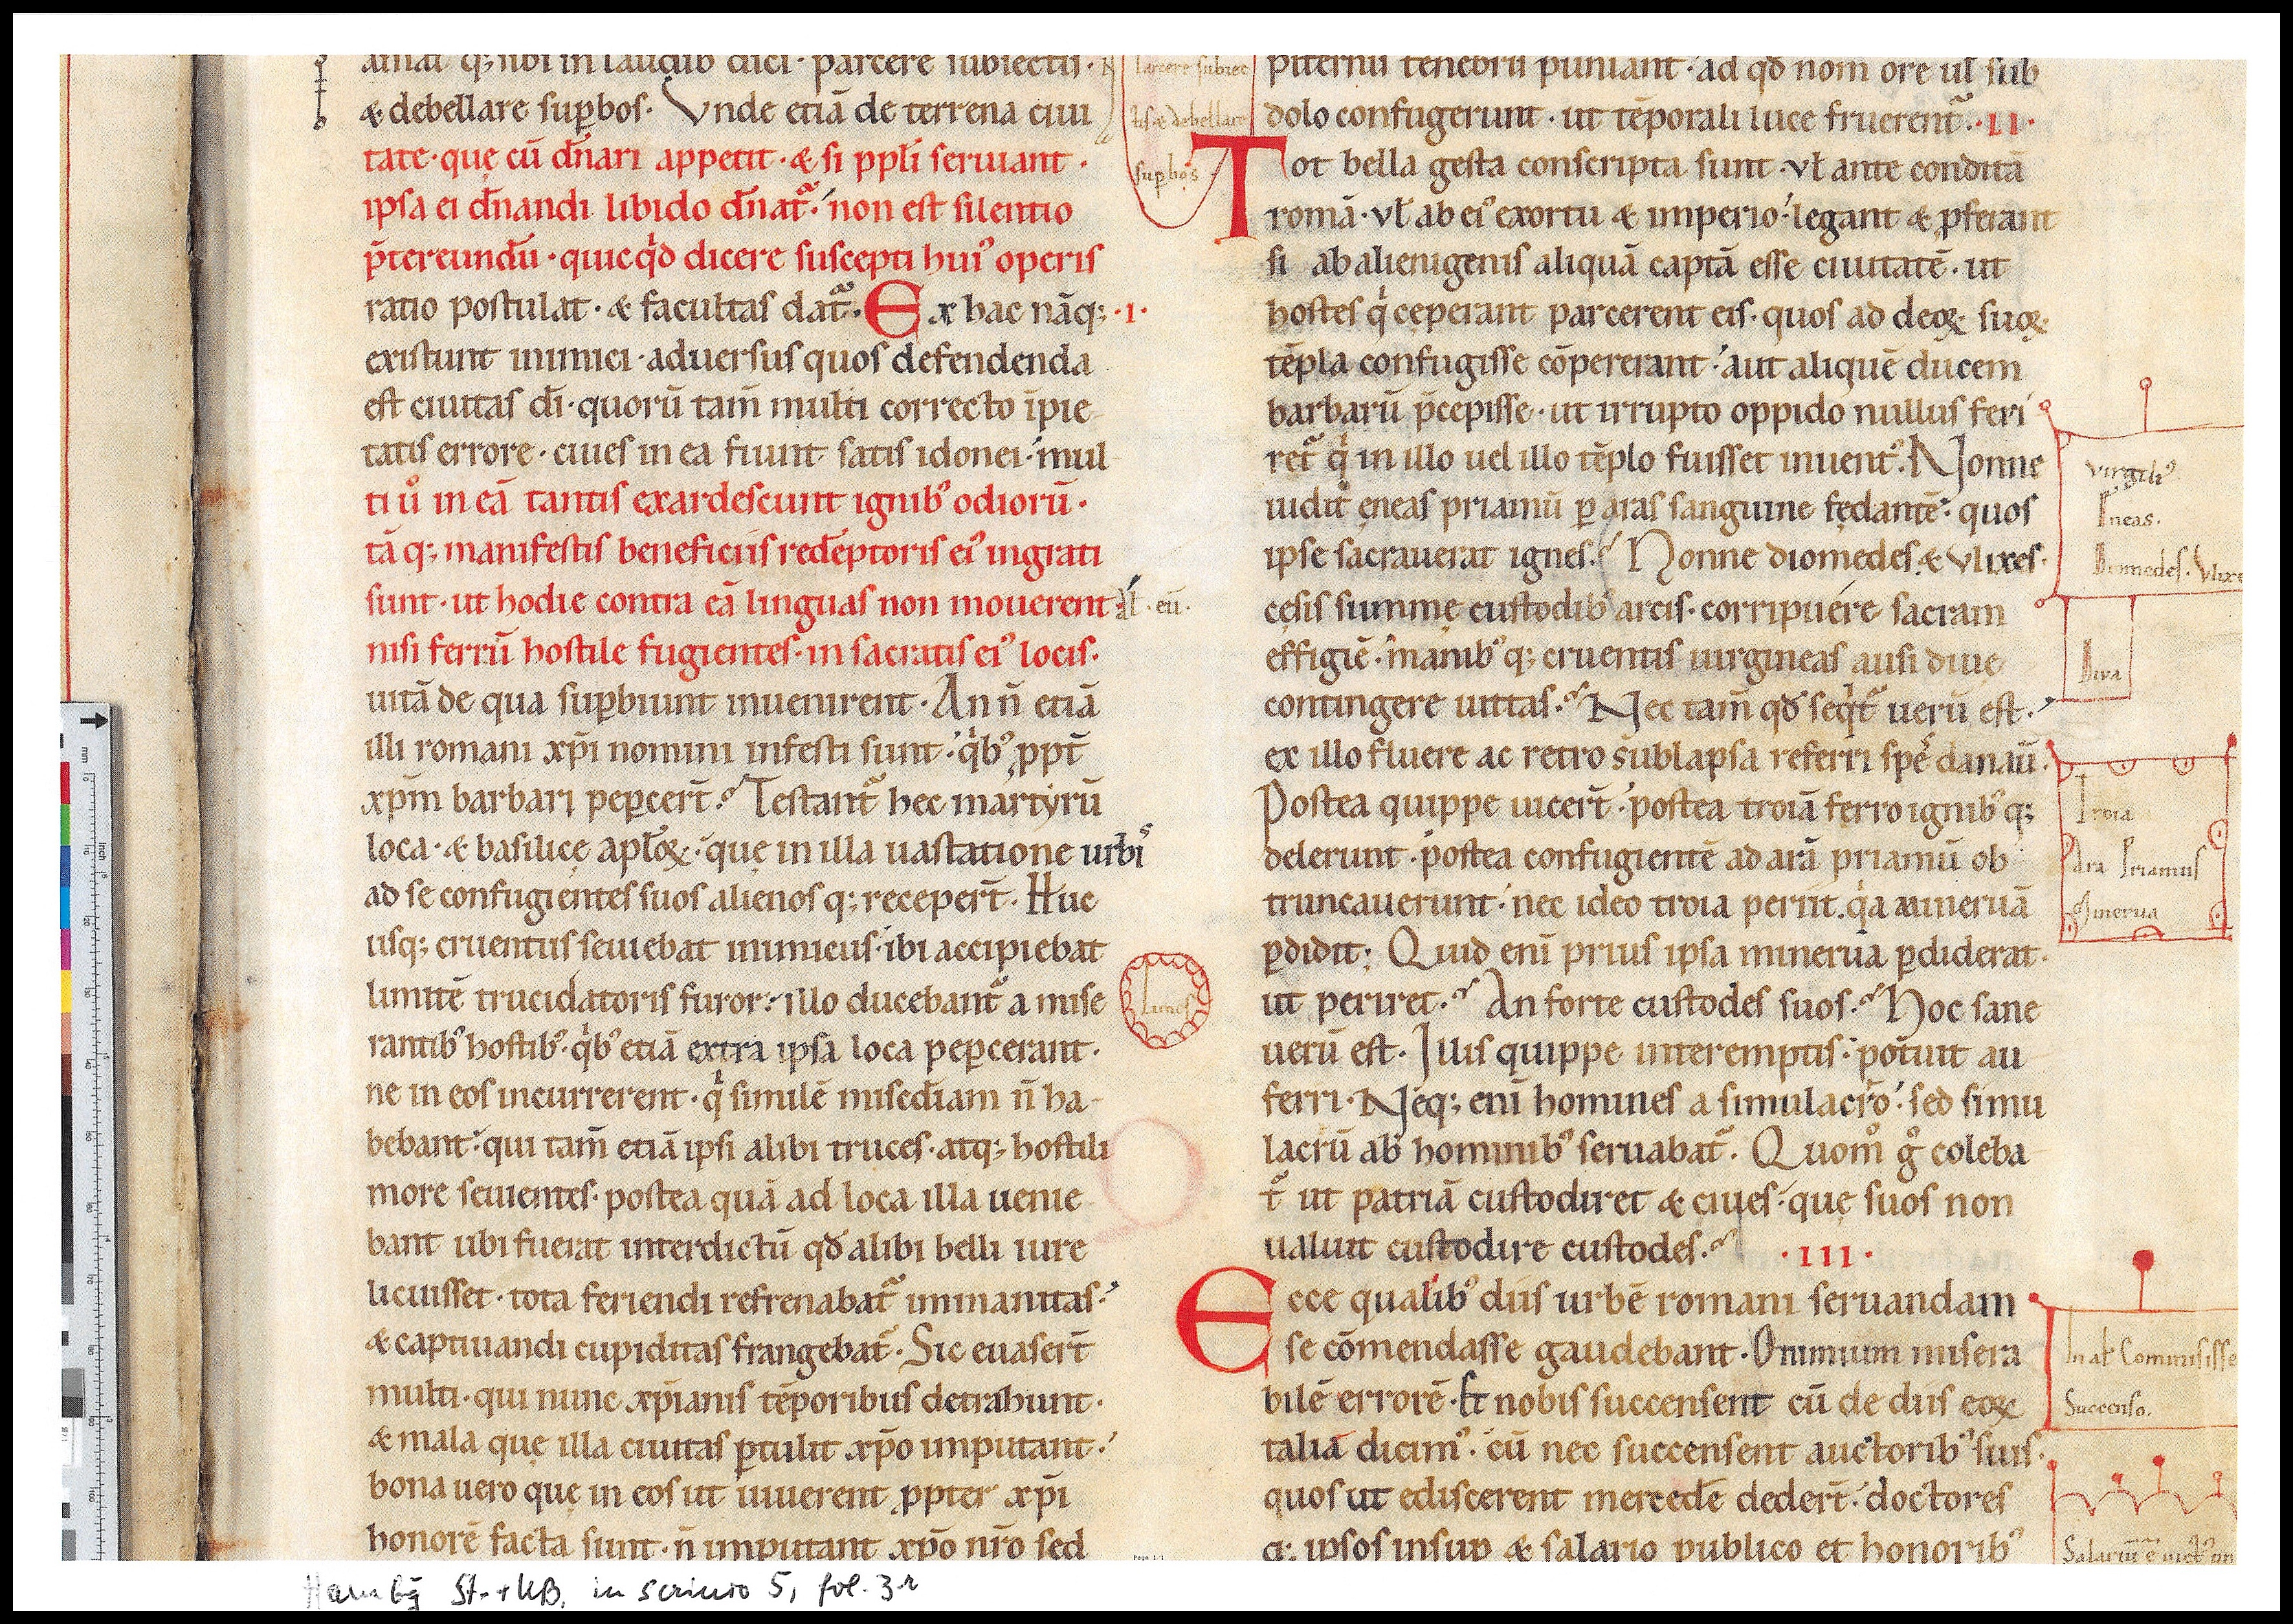 amat q; sibi in laudib dici · parcere subiectis ·
& debellare sup̱bos · Vnde etiā de terrena ciui
tate · quę cū dn̄ari appetit · & si pp̄li seruiant ·
ipsa ei dn̄andi libido dn̄at᷑ · non est silentio
p̄tereundū · quicq̇d dicere suscepti hui⁹ operis
ratio postulat · & facultas dat᷑ · Ex hac nāq; · I ·
existunt inimici · aduersus quos defendenda
est ciuitas dī · quorū tam̄ multi correcto īpie
tatis errore · ciues in ea fiunt satis idonei · mul
ti ů in eā tantis exardescunt ignib⁹ odiorū ·
tā q; manifestis beneficiis redēptoris ei⁹ ingrati
sunt · ut hodie contra eā linguas non mouerent
nisi ferrū hostile fugientes · in sacratis ei⁹ locis ·
uitā de qua sup̱biunt inuenirent · An n̄ etiā
illi romani xp̄i nomini infesti sunt · q̇b⁹ ꝓpt̄
xp̄m barbari pep̱cer̄t · Testant᷑ hec martyrū
loca · & basilicę aplōꝝ · quę in illa uastatione urbis
ad se confugientes suos alienos q; receper̄t · Huc
usq; cruentus seuiebat inimicus · ibi accipiebat
limitē trucidatoris furor · illo ducebant᷑ a mise
rantib⁹ hostib⁹ · q̇b⁹ etiā extra ipsa loca pep̱cerant ·
ne in eos incurrerent · q̇ similē mis̄ediam n̄ ha
bebant · qui tam̄ etiā ipsi alibi truces · atq; hostili
more seuientes · postea quā ad loca illa uenie
bant ubi fuerat interdictū qđ alibi belli iure
licuisset · tota feriendi refrenabat᷑ inmanitas ·
& captiuandi cupiditas frangebat᷑ · Sic euaser̄t
multi · qui nunc xp̄ianis tēporibus detrahunt ·
& mala quę illa ciuitas ꝑtulit xp̄o imputant ·
bona uero quę in eos ut uiuerent ꝓpter xp̄i
honorē facta sunt · n̄ imputant xp̄o nr̄o sed
parcere subiec
tis & debellare
sup̱bos
al̄ · eū ·
Limes
piternis tenebris puniant᷑ · ad qđ nom̄ ore ul̄ sub
dolo confugerunt · ut tēporali luce fruerent᷑ · II ·
Tot bella gesta conscripta sunt · vl̄ ante conditā
romā · vl̄ ab ei⁹ exortu & imperio · legant & ꝓferant
si ab alienigenis aliquā captā esse ciuitatē · ut
hostes q̇ ceperant parcerent eis · quos ad deoꝝ suoꝝ
tēpla confugisse cōpererant · aut aliquē ducem
barbarū p̄cepisse · ut irrupto oppido nullus feri
ret᷑ q̇ in illo uel illo tēplo fuisset inuent⁹ · Nonne
uidit ęneas priamū ꝑ aras sanguine fędantē · quos
ipse sacrauerat ignes · Nonne diomedes & vlixes ·
cęsis summę custodib⁹ arcis · corripuere sacram
effigiē · manib⁹ q; cruentis uirgineas ausi diue
contingere uittas · Nec tam̄ qđ seq̇t᷑ uerū est ·
ex illo fluere ac retro sublapsa referri spes danaū ·
Postea quippe uicer̄t · postea troiā ferro ignib⁹ q;
delerunt · postea confugientē ad arā priamū ob
truncauerunt · nec ideo troia periit · q̇a mineruā
ꝑdidit · Quid enī prius ipsa minerua ꝑdiderat ·
ut periret · An forte custodes suos · Hoc sane
uerū est · Illis quippe interemptis · potuit au
ferri · Neq; enī homines a simulacro · sed simu
lacrū ab hominib⁹ seruabat᷑ · Quom̊ g̊ coleba
t᷑ ut patriā custodiret & ciues · quę suos non
ualuit custodire custodes · · III ·
Ecce qualib⁹ diis urbē romani seruandam
se cōmendasse gaudebant · O nimium misera
bilē errorē · Et nobis succensent cū de diis eoꝝ
talia dicim⁹ · cū nec succensent auctorib⁹ suis ·
quos ut ediscerent mercedē deder̄t · doctores
q; ipsos insup̱ & salario publico et honorib⁹
Virgili⁹
Eneas ·
Diomedes · Vlixe
Diva
Troia
Ara Priamus
Minerua
In al̄ Commisisse
Succenso ·
Salariū
mm
inch
Hambg St.+UB, in scrinio 5, fol. 3r